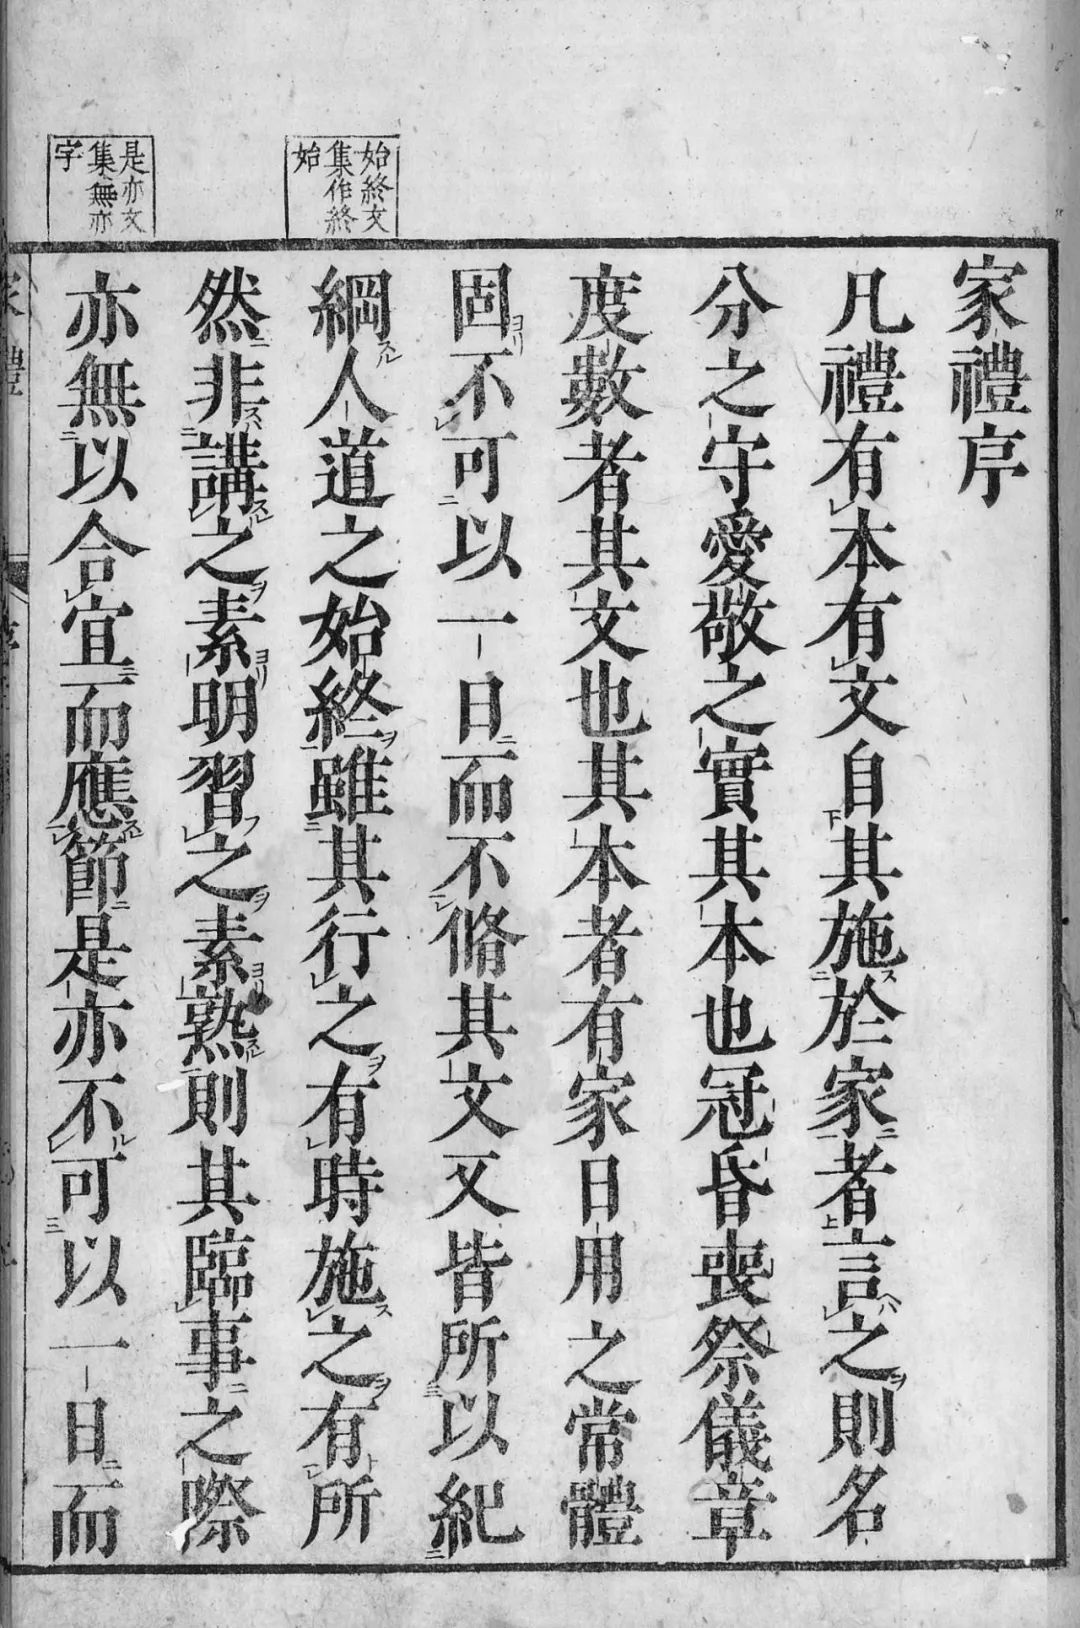 家禮序
凡禮有本有文自其施於家者言之則名
分之守愛敬之實其本也冠昏喪祭儀章
度數者其文也其本者有家日用之常體
固不可以一日而不脩其文又皆所以紀
綱人道之始終雖其行之有時施之有所
然非講之素明習之素熟則其臨事之際
亦無以合宜而應節是亦不可以一日而
始終文
集作終
始
是亦文
集無亦
字